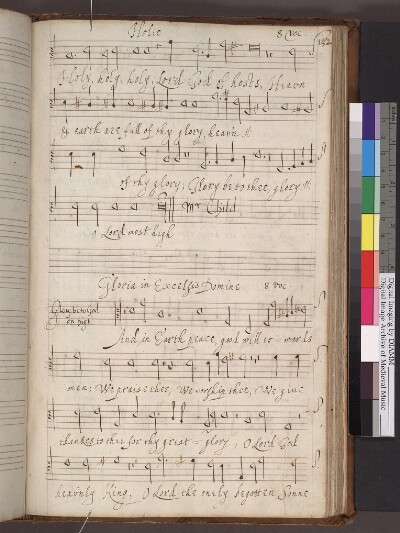 Holie 8 voc
182
Holy, holy, holy, Lord God of hosts, Heavn
& earth are full of thy glory, heavn it
of thy glory; Glory be to thee, glory it
Mr Child
o Lord most high
Gloria in Excelsis Domine 8 voc
Glory be to God
on high
And in Earth peace, good will to-wards
men: We praise thee, We worship thee, We give
thankes to thee for thy great glory, O Lord God
heavenly King, O Lord the onely begotten Sonne
Digital Imaging by DIAMM
Digital Image Archive of Medieval Music